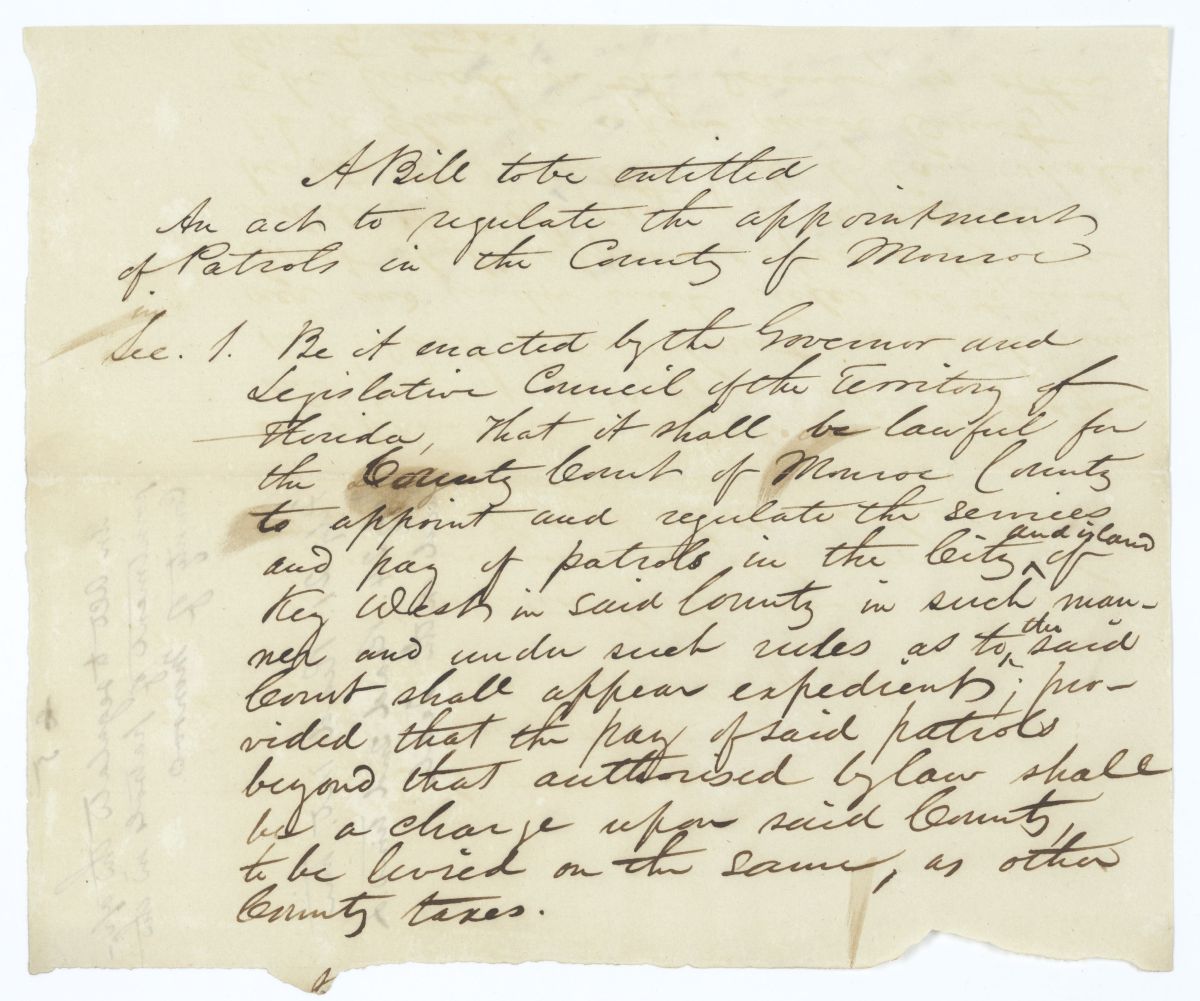 A Bill to be entitled
An act to regulate the appointment
of Patrols in the County of Monroe
Sec. 1. Be it enacted by the Governor and
Legislative Council of the Territory of
Florida, That it shall be lawful for
the County Court of Monroe County
to appoint and regulate the services
and pay of patrols in the City ^and island of
Key West in said County in such man-
ner and under such rules as to ^the said
Court shall appear expedient; pro-
vided that the pay of said patrols
beyond that authorised by law shall
be a charge upon said County,
to be levied on the same, as other
County taxes.